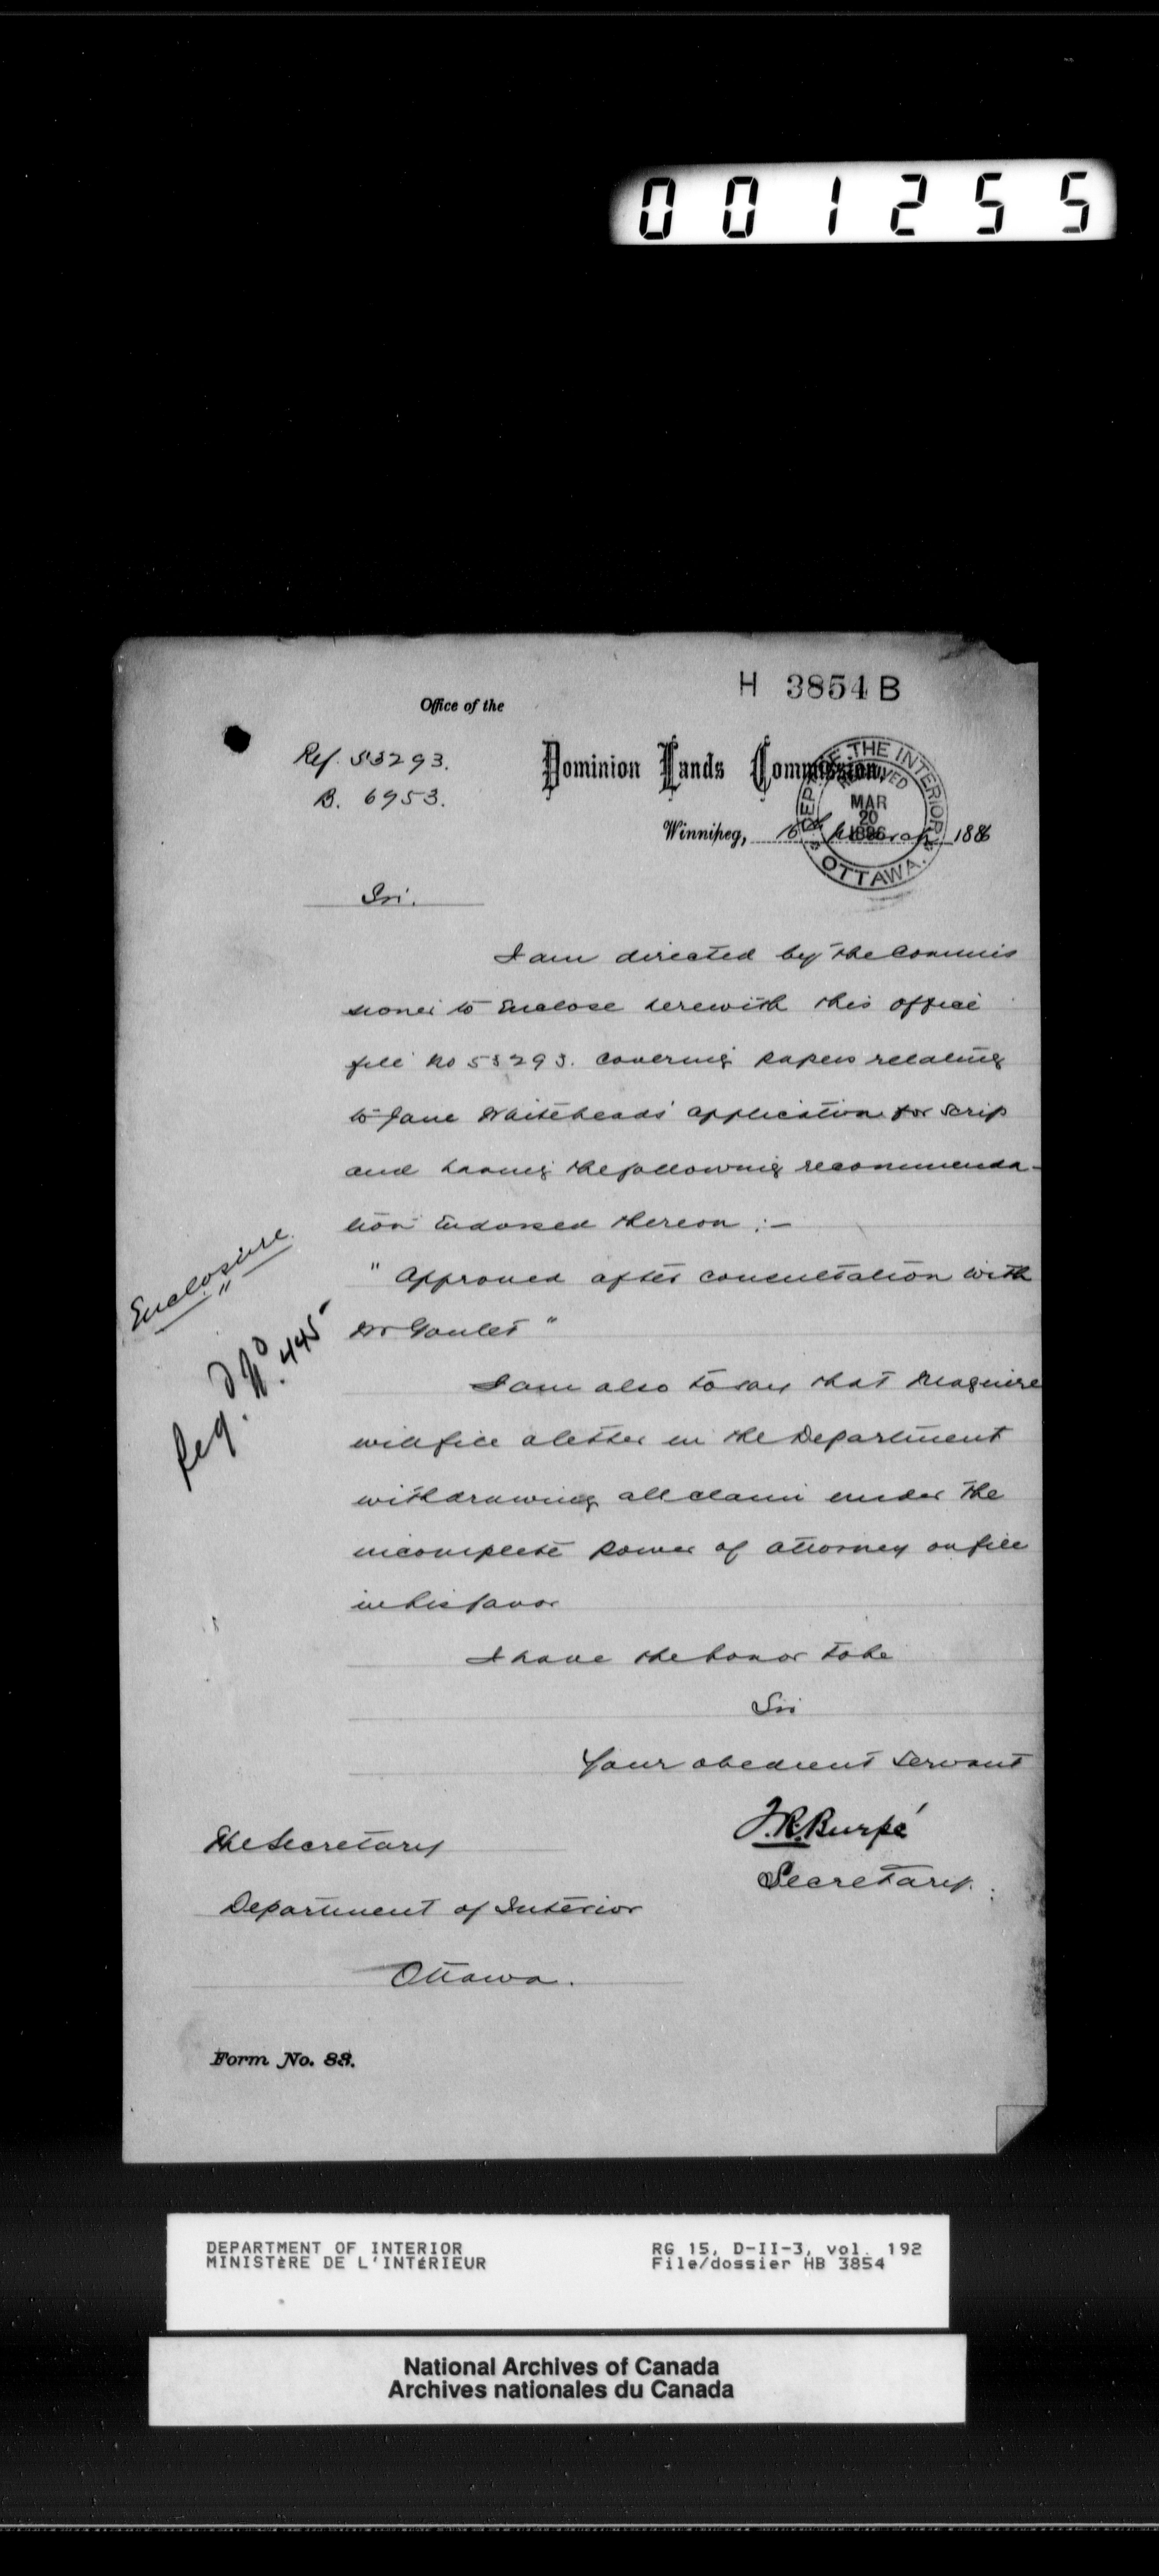 001255
H 3854 B
Office of the
Ref. 53293.
Dominion Lands Commission,
B. 6953.
DEPT. OF THE INTERIOR
RECEIVED
MAR
20
1886
OTTAWA.
Winnipeg, 16th March 1886
Sir.
I am directed by the Commis
sioner to Enclose herewith this office
file No 53293. covering papers relating
to Jane Whiteheads' application for Scrip
and having the following recommenda-
tion Endorsed thereon :-
" Approved after consultation with
Mr Goulet "
Enclosure
Reg. No. 445
I am also to say that Maguire
will file a letter in the Department
withdrawing all claim under the
incomplete power of attorney on file
in his favor
I have the honor to be
Sir
Your obedient Servant
J.R. Burpé
Secretary.
The Secretary
Department of Interior
Ottawa.
Form No. 83.
DEPARTMENT OF INTERIOR
MINISTÈRE DE L'INTÉRIEUR
RG 15, D-II-3, vol. 192
File/dossier HB 3854
National Archives of Canada
Archives nationales du Canada